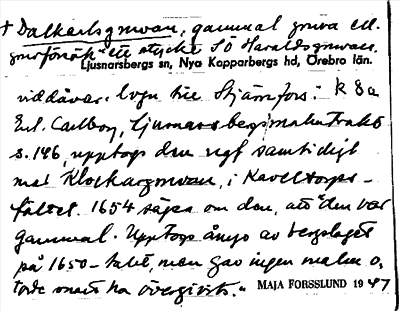 † Dalkarlsgruvan, gammal gruva ell.
gruvförsök ett stycke SÖ Haraldsgruvan
Ljusnarsbergs sn, Nya Kopparbergs hd, Örebro län.
vid vägen till Stjärnfors. k 8a
Enl. Carlborg, Ljusnarsbergs malmtrakt
s. 146, upptogs den ngf samtidigt
med Klockargruvan, i Kaveltorps-
fältet. 1654 säges om den, att "den var
gammal. Upptogs ånyo av bergslaget
på 1650-talet, men gav ingen malm o.
torde snart ha övergivits."
MAJA FORSSLUND 1947